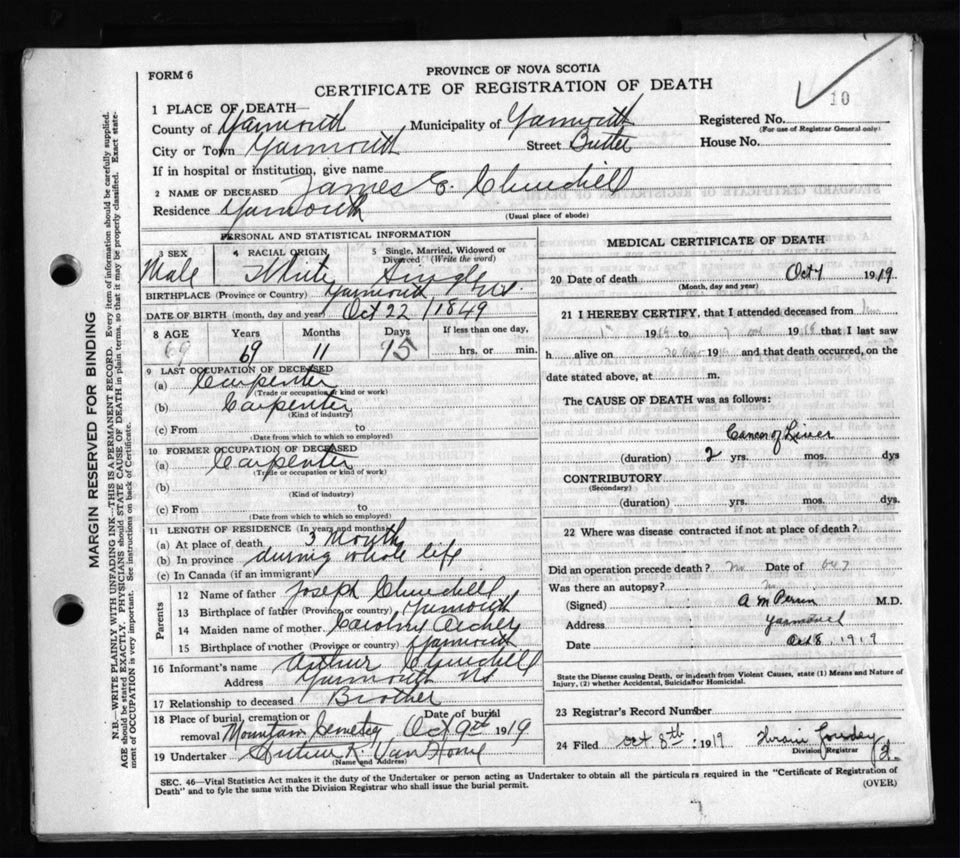 FORM 6
PROVINCE OF NOVA SCOTIA
CERTIFICATE OF REGISTRATION OF DEATH
10
1 PLACE OF DEATH—
County of Yarmouth Municipality of Yarmouth Registered No.
(For use of Registrar General only)
City or Town Yarmouth Street Butler House No.
If in hospital or institution, give name
2 NAME OF DECEASED James E. Churchill
Residence Yarmouth
(Usual place of abode)
PERSONAL AND STATISTICAL INFORMATION
3 SEX Male
4 RACIAL ORIGIN White
5 Single, Married, Widowed or Divorced (Write the word) Single
BIRTHPLACE (Province or Country) Yarmouth N.S.
DATE OF BIRTH (month, day and year) Oct 22 1849
8 AGE Years Months Days If less than one day,
69 69 11 15 hrs. or min.
9 LAST OCCUPATION OF DECEASED
(a) Carpenter
(Trade or occupation or kind or work)
(b) Carpenter
(Kind of industry)
(c) From to
(Date from which to which so employed)
10 FORMER OCCUPATION OF DECEASED
(a) Carpenter
(Trade or occupation or kind of work)
(b)
(Kind of industry)
(c) From to
(Date from which to which so employed)
11 LENGTH OF RESIDENCE (In years and months)
(a) At place of death 3 Month
(b) In province during whole life
(c) In Canada (if an immigrant)
Parents
12 Name of father Joseph Churchill
13 Birthplace of father (Province or country) Yarmouth
14 Maiden name of mother Archer
15 Birthplace of mother (Province or country) Yarmouth
16 Informant's name Arthur Churchill
Address Yarmouth NS
17 Relationship to deceased Brother
18 Place of burial, cremation or removal Mountain Cemetery Date of burial Oct 9th 1919
19 Undertaker K. Van Horne
(Name and Address)
MEDICAL CERTIFICATE OF DEATH
20 Date of death Oct 7 1919
(Month, day and year)
21 I HEREBY CERTIFY, that I attended deceased from
19 to 19 that I last saw
h alive on 19 and that death occurred, on the
date stated above, at m.
The CAUSE OF DEATH was as follows:
Cancer of Liver
(duration) 2 yrs. mos. dys
CONTRIBUTORY
(Secondary)
(duration) yrs. mos. dys.
22 Where was disease contracted if not at place of death?
Did an operation precede death? no Date of
Was there an autopsy? no
(Signed) A M Perrin M.D.
Address Yarmouth
Date Oct 8, 1919
State the Disease causing Death, or in death from Violent Causes, state (1) Means and Nature of Injury, (2) whether Accidental, Suicidal or Homicidal.
23 Registrar's Record Number
24 Filed Oct 8th 1919
Division Registrar
SEC. 46—Vital Statistics Act makes it the duty of the Undertaker or person acting as Undertaker to obtain all the particulars required in the "Certificate of Registration of
Death" and to fyle the same with the Division Registrar who shall issue the burial permit.
(OVER)
MARGIN RESERVED FOR BINDING
N.B.—WRITE PLAINLY WITH UNFADING INK—THIS IS A PERMANENT RECORD. Every item of information should be carefully supplied.
AGE should be stated EXACTLY. PHYSICIANS should STATE CAUSE OF DEATH in plain terms, so that it may be properly classified. Exact statement of OCCUPATION is very important. See instructions on back of Certificate.